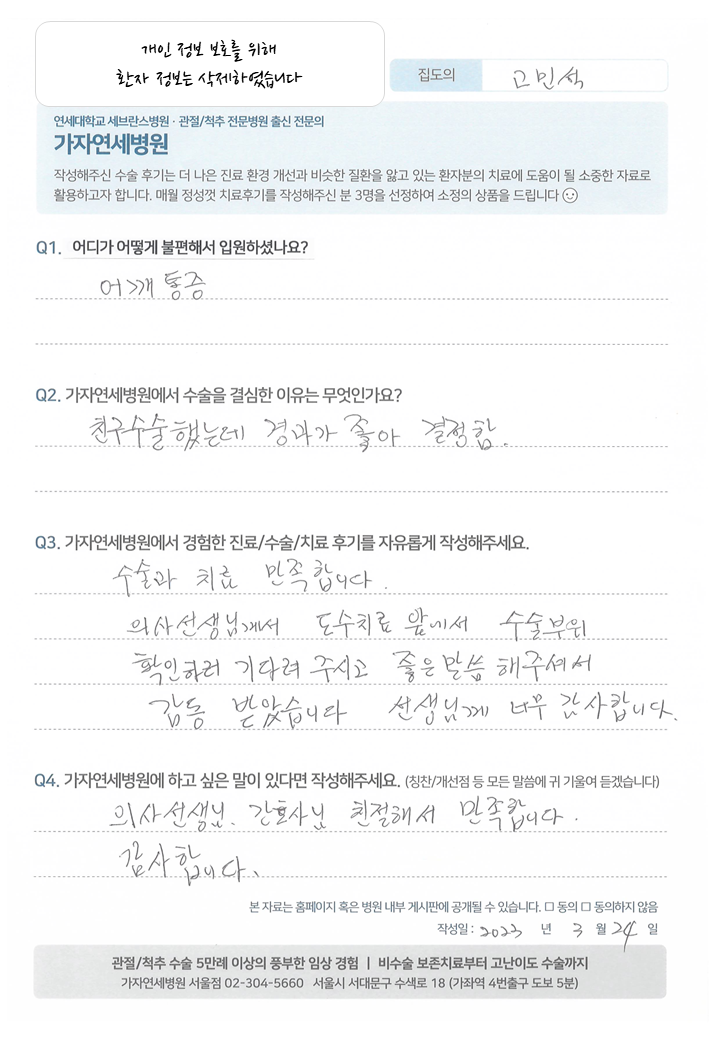 개인 정보 보호를 위해
환자 정보는 삭제하였습니다
집도의 고민석
연세대학교 세브란스병원 · 관절/척추 전문병원 출신 전문의
가자연세병원
작성해주신 수술 후기는 더 나은 진료 환경 개선과 비슷한 질환을 앓고 있는 환자분의 치료에 도움이 될 소중한 자료로
활용하고자 합니다. 매월 정성껏 치료후기를 작성해주신 분 3명을 선정하여 소정의 상품을 드립니다
Q1. 어디가 어떻게 불편해서 입원하셨나요?
어깨 통증
Q2. 가자연세병원에서 수술을 결심한 이유는 무엇인가요?
친구수술했는데 경과가 좋아 결정함.
Q3. 가자연세병원에서 경험한 진료/수술/치료 후기를 자유롭게 작성해주세요.
수술과 치료 만족합니다.
의사선생님께서 도수치료 앞에서 수술부위
확인하러 기다려 주시고 좋은말씀 해주셔서
감동 받았습니다 선생님께 너무 감사합니다.
Q4. 가자연세병원에 하고 싶은 말이 있다면 작성해주세요. (칭찬/개선점 등 모든 말씀에 귀 기울여 듣겠습니다)
의사선생님. 간호사님 친절해서 만족합니다.
감사합니다.
본 자료는 홈페이지 혹은 병원 내부 게시판에 공개될 수 있습니다. □ 동의 □ 동의하지 않음
작성일 : 2023 년 3 월 24 일
관절/척추 수술 5만례 이상의 풍부한 임상 경험 | 비수술 보존치료부터 고난이도 수술까지
가자연세병원 서울점 02-304-5660 서울시 서대문구 수색로 18 (가좌역 4번출구 도보 5분)